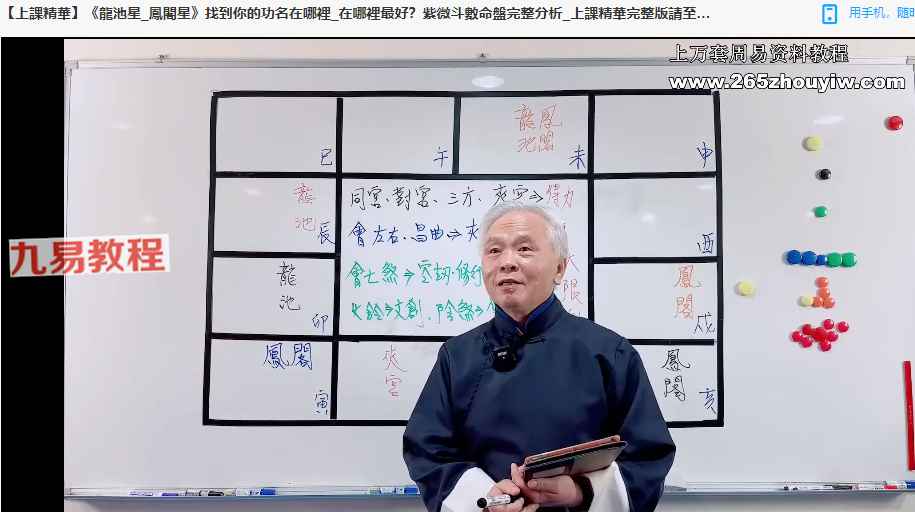 【上課精華】《龍池星_鳳閣星》找到你的功名在哪裡_在哪裡最好? 紫微斗數命盤完整分析_上課精華完整版請至...
用手机，随时
上万套周易资料教程
www.265zhouyiw.com
龍池 鳳閣
巳
午
未
申
龍池
辰
同宮、對宮、三方、夾宮⇒得力
會左右、昌曲⇒夾
酉
九易教程
龍池
卯
會七煞⇒空劫、修行
大限
鳳閣
戌
火鈴⇒文創、陰煞⇒
鳳閣
寅
夾宮
鳳閣
亥